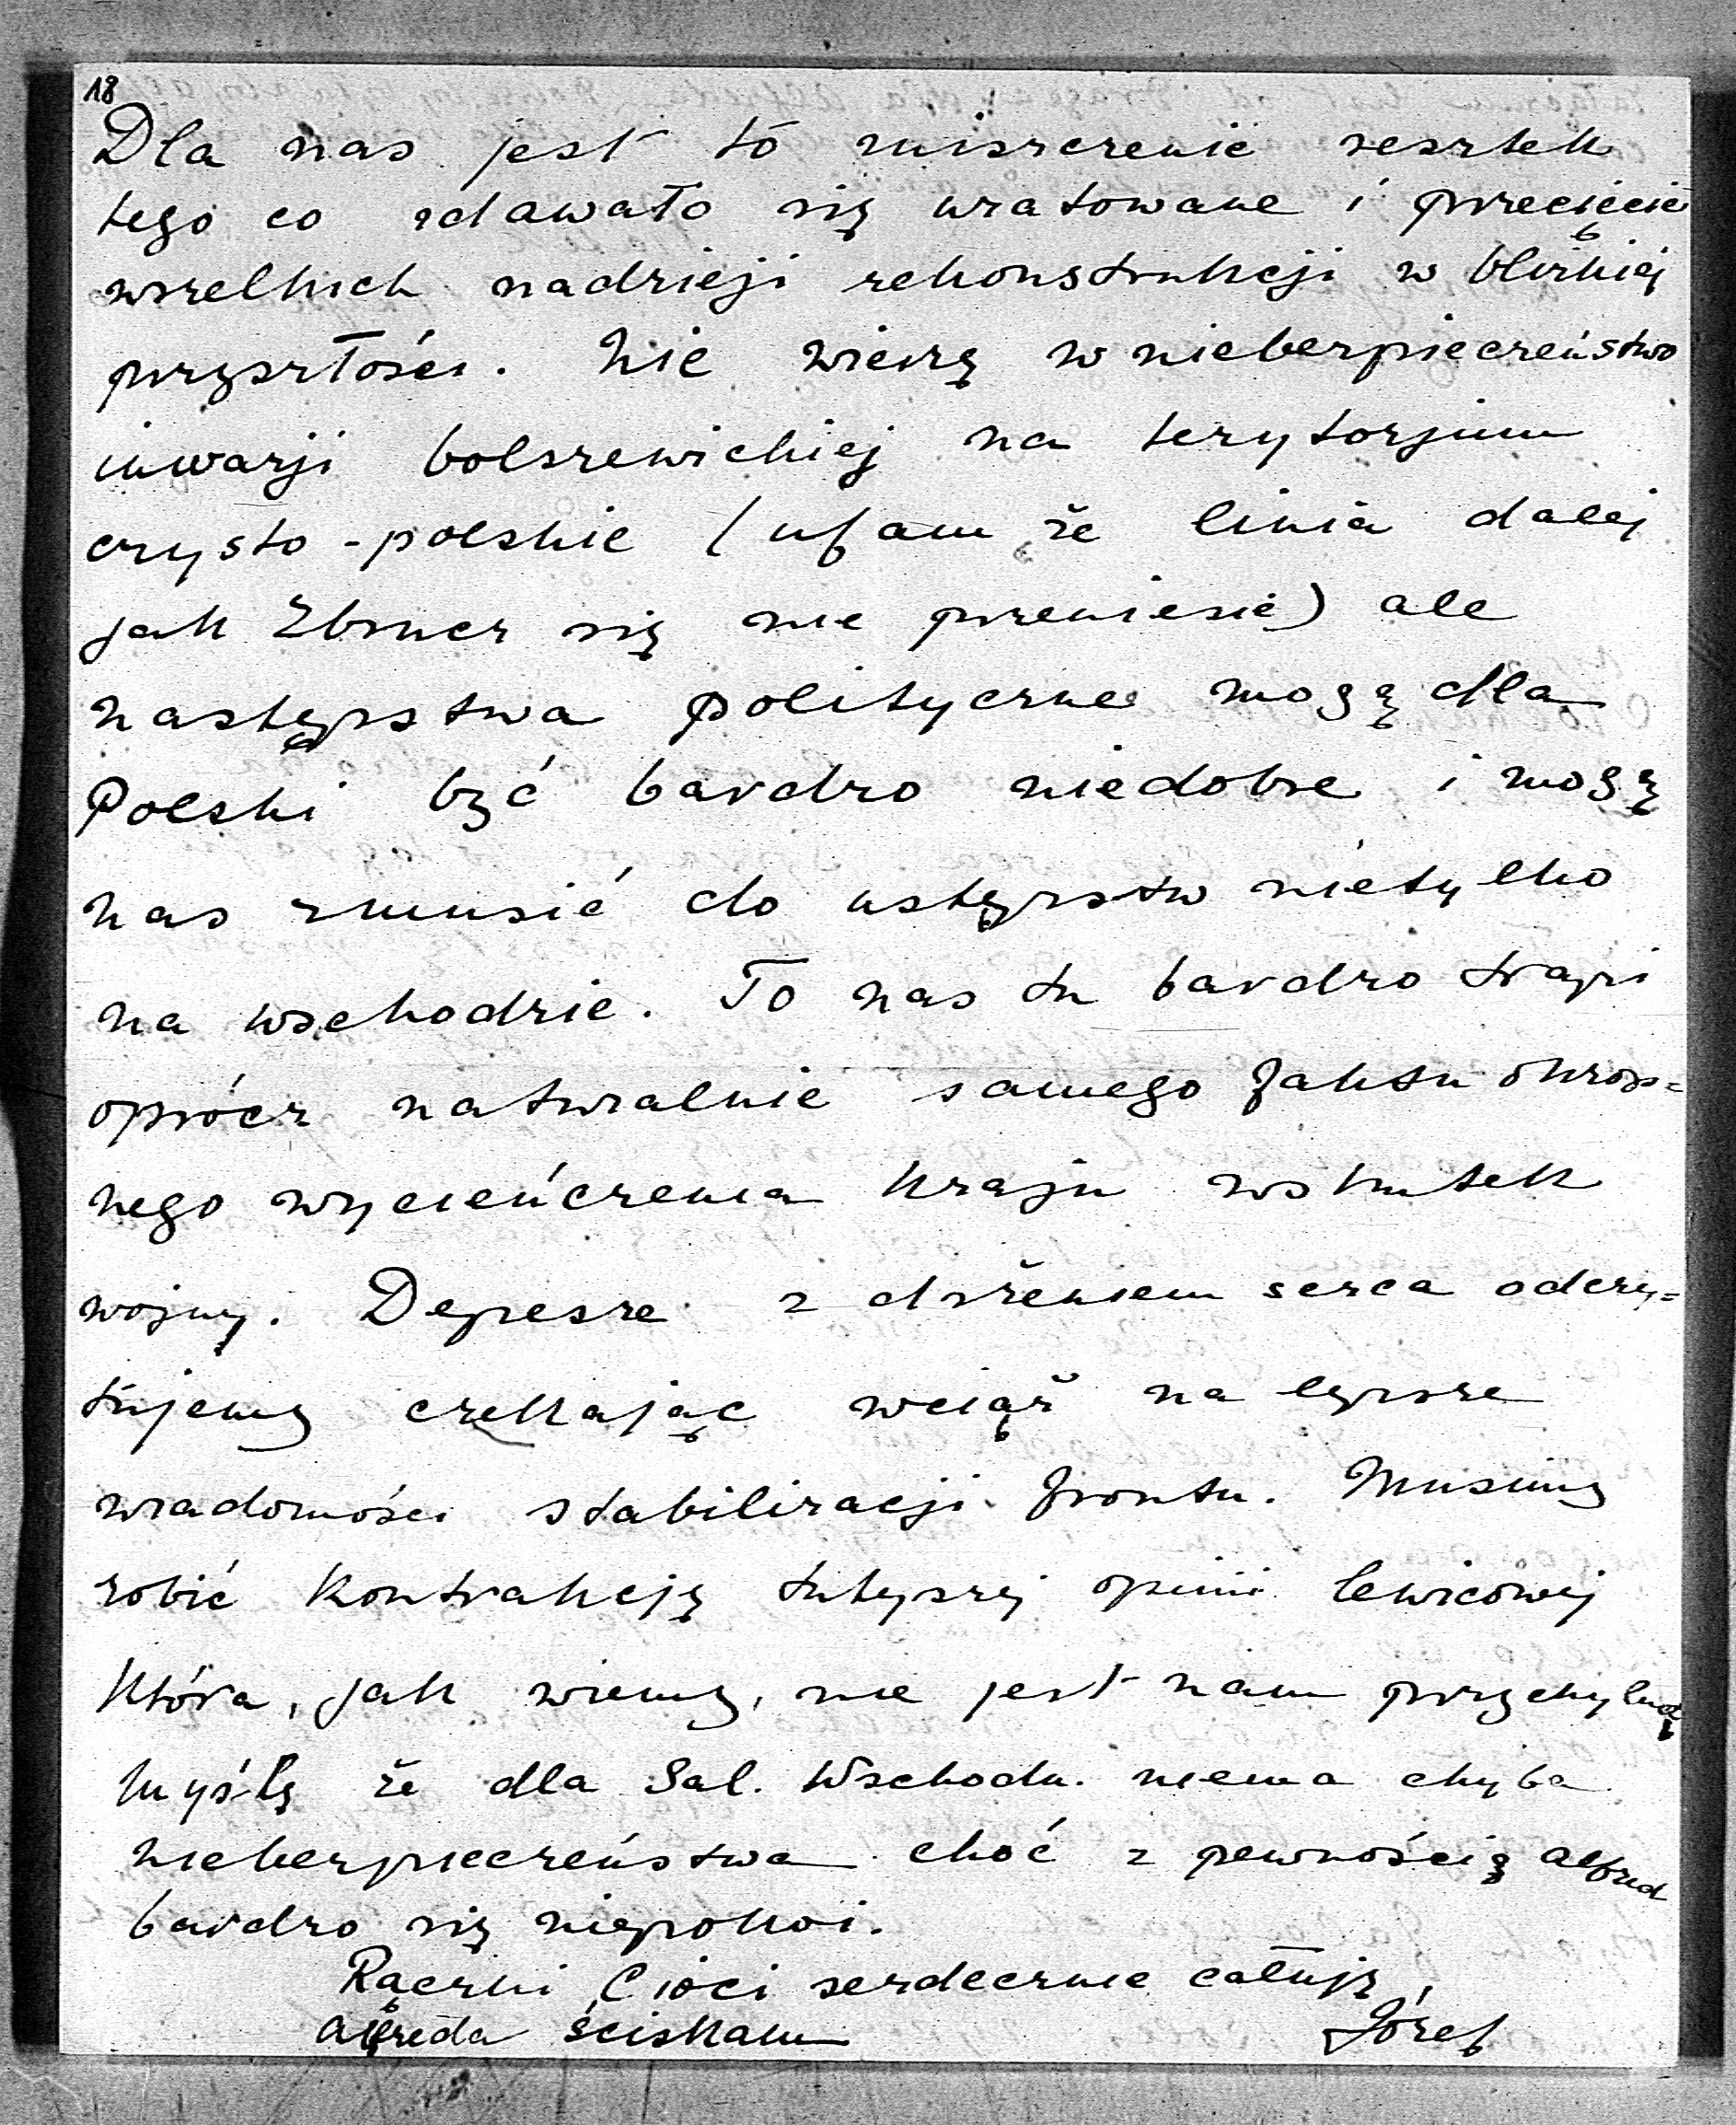 18
Dla nas jest to zniszczenie resztek
tego co zdawało się uratowane i przecięcie
wszelkich nadzieji rekonstrukcji w blizkiej
przyszłości. Nie wierzę w niebezpieczeństwo
inwazji bolszewickiej na terytorjum
czysto-polskie (ufam że linia dalej
jak Zbrucz się nie przeniesie) ale
następstwa polityczne mogą dla
Polski być bardzo niedobre i mogą
nas zmusić do ustępstw nietylko
na wschodzie. To nas tu bardzo trapi
oprócz naturalnie samego faktu okrop=
nego wycieńczenia kraju wskutek
wojny. Depesze z drżeniem serca odczy=
tujemy czekając wciąż na lepsze
wiadomości stabilizacji frontu. Musimy
robić kontrakcję tutejszej opinii lewicowej
która, jak wiemy, nie jest nam przychylną
Myślę że dla Gal. Wschodn. niema chyba
niebezpieczeństwa choć z pewnością Alfred
bardzo się niepokoi.
Rączki Cioci serdecznie całuję,
Alfreda ściskam Józef